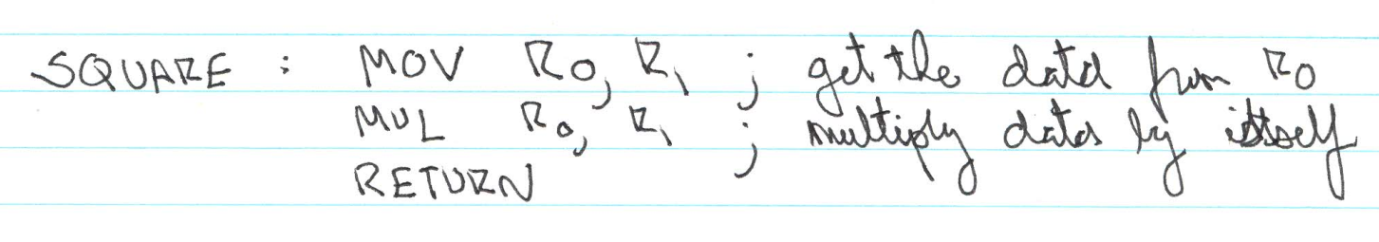 SQUARE : MOV R0, R1 ; get the data from R0
MUL R0, R1 ; multiply data by itself
RETURN